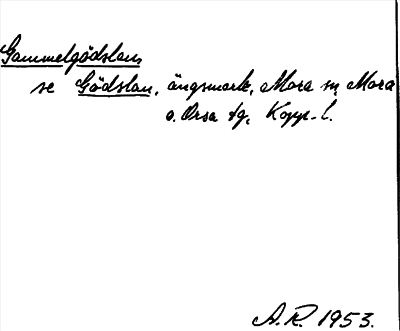 Gammelgödslan
se Gödslan, ängsmark, Mora sn, Mora
o. Orsa tg, Kopp. l.
A.R. 1953.